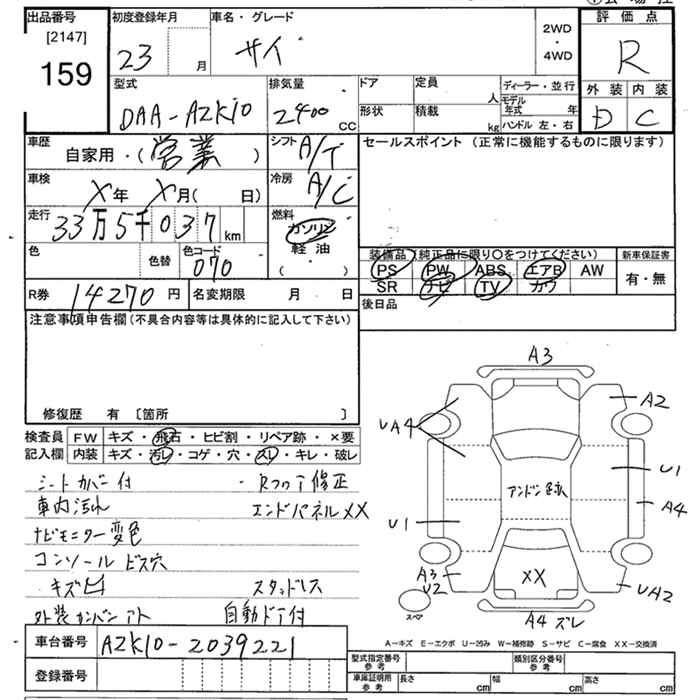 出品番号
[2147]
159
初度登録年月
23 月
車名・グレード
サイ
2WD
・
4WD
評価点
R
外装 内装
D C
型式
DAA-AZK10
排気量
2400 CC
ドア
形状
定員 人
積載 kg
ディーラー・並行
モデル年式 年
ハンドル 左・右
車歴
自家用・(営業)
シフト A/T
セールスポイント(正常に機能するものに限ります)
車検
X年 X月( 日)
冷房 A/C
走行
33万5千037 km
燃料
ガソリン
軽油
( )
色
色替
色コード
070
装備品(純正品に限り○をつけてください)
新車保証書
PS PW ABS エアB AW
有・無
SR ナビ TV カワ
R券 14270円
名変期限 月 日
後日品
注意事項申告欄(不具合内容等は具体的に記入して下さい)
修復歴 有 〔箇所 〕
検査員
記入欄
FW キズ・飛石・ヒビ割・リペア跡・×要
内装 キズ・汚レ・コゲ・穴・スレ・キレ・破レ
シートカバー付
・Rフロア修正
車内汚れ
エンドパネルXX
ナビモニター変色
コンソール ビス穴
キズ凹
スタッドレス
自動ドア付
A3
A2
UA4
U1
アンドン
A4
U1
A3
U2
XX
UA2
スペア
A4 ズレ
A－キズ E－エクボ U－凹み W－補修跡 S－サビ C－腐食 XX－交換済
車台番号 AZK10-2039221
登録番号
型式指定番号
参考
類別区分番号
参考
車庫証明用
参考
長さ cm
幅 cm
高さ cm